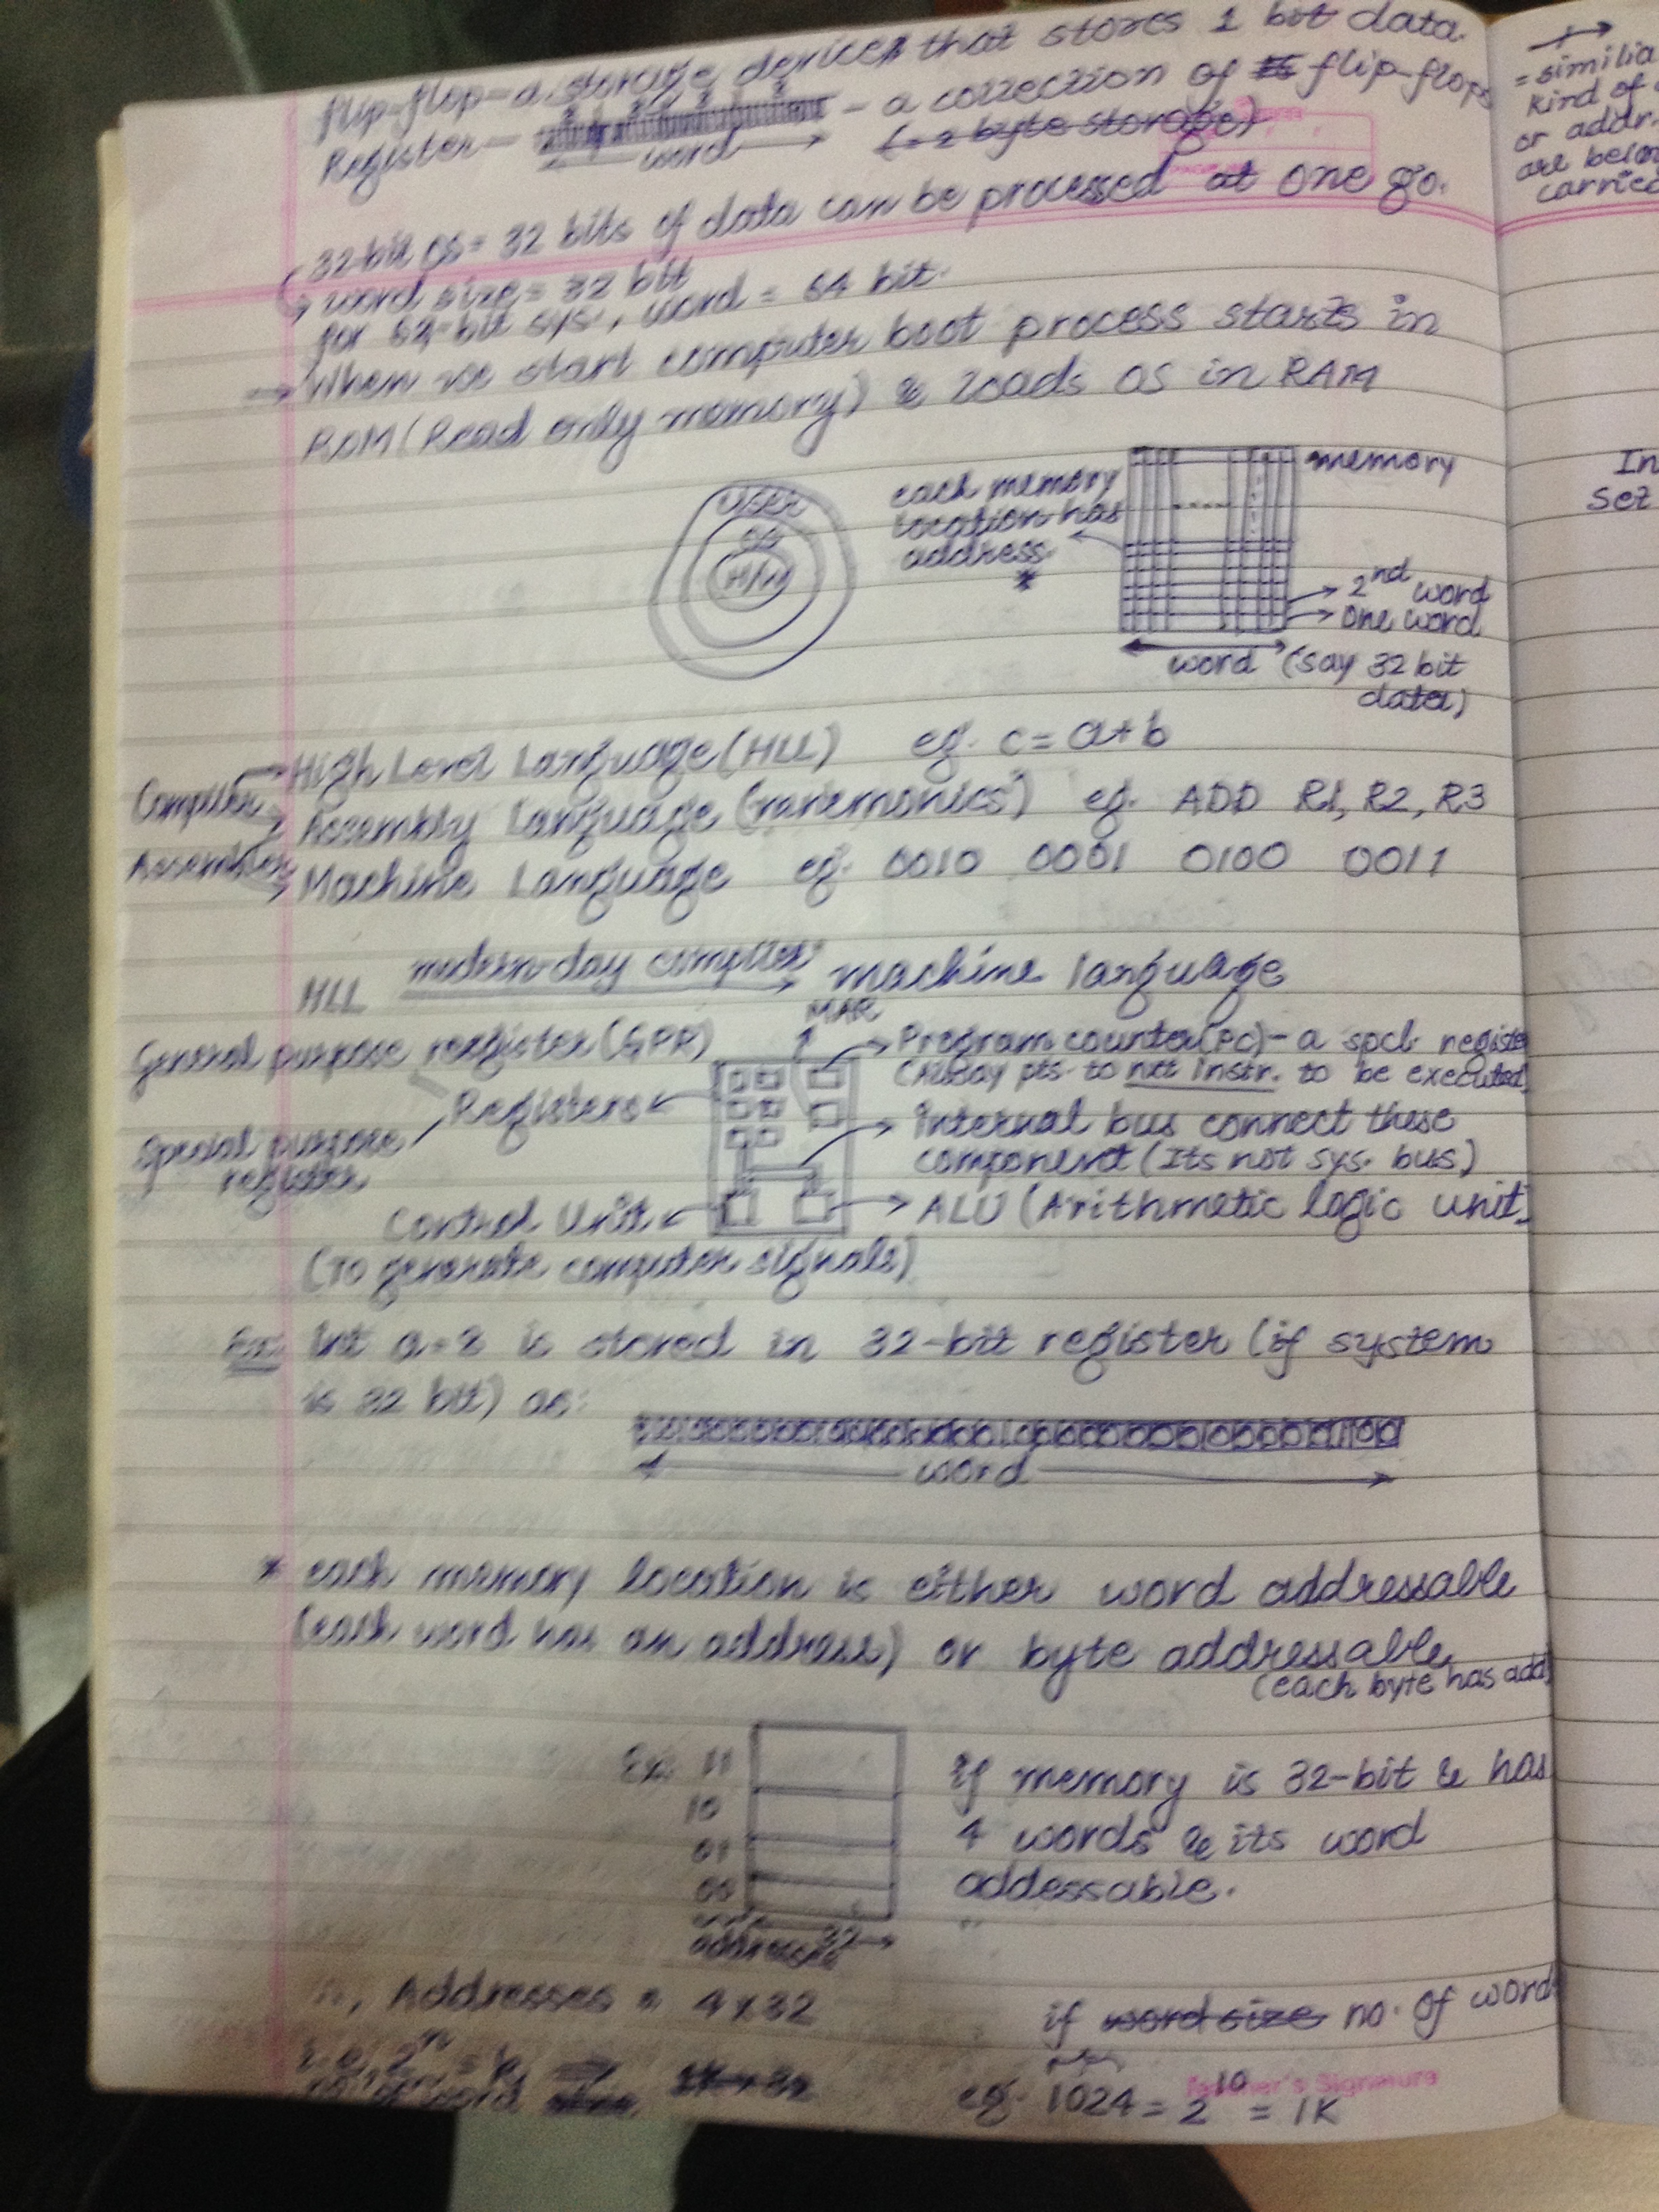 flip-flop - a storage device that stores 1 bit data.
Register - - a collection of flip-flops
word (= 2 byte storage)
32-bit OS = 32 bits of data can be processed at one go.
word size = 32 bit
for 64-bit sys, word = 64 bit.
→ When we start computer boot process starts in
ROM (Read only memory) & loads OS in RAM
User
OS
H/W
each memory
location has
address.
*
memory
2nd word
one word
word (say 32 bit
data)
Compiler
Assembler
High Level Language (HLL) eg. c = a + b
Assembly Language (mnemonics) eg. ADD R1, R2, R3
Machine Language eg. 0010 0001 0100 0011
HLL modern-day compiler machine language
MAR
General purpose register (GPR)
Program counter (PC) - a spcl. register
pts. to nxt instr. to be executed
Registers
Special purpose
register
internal bus connect these
component (Its not sys. bus)
Control Unit
ALU (Arithmetic logic unit)
(To generate computer signals)
Ex: int a = is stored in 32-bit register (if system
is 32 bit) as:
word
* each memory location is either word addressable
(each word has an address) or byte addressable
(each byte has add)
Ex: 11
10
01
00
32
addresses
if memory is 32-bit & has
4 words & its word
addessable.
Addresses = 4 x 32
if word size no. of word
eg. 1024 = 2^10 = 1K
Teacher's Signature
= similia
kind of
or addr.
are
carried
In
Set